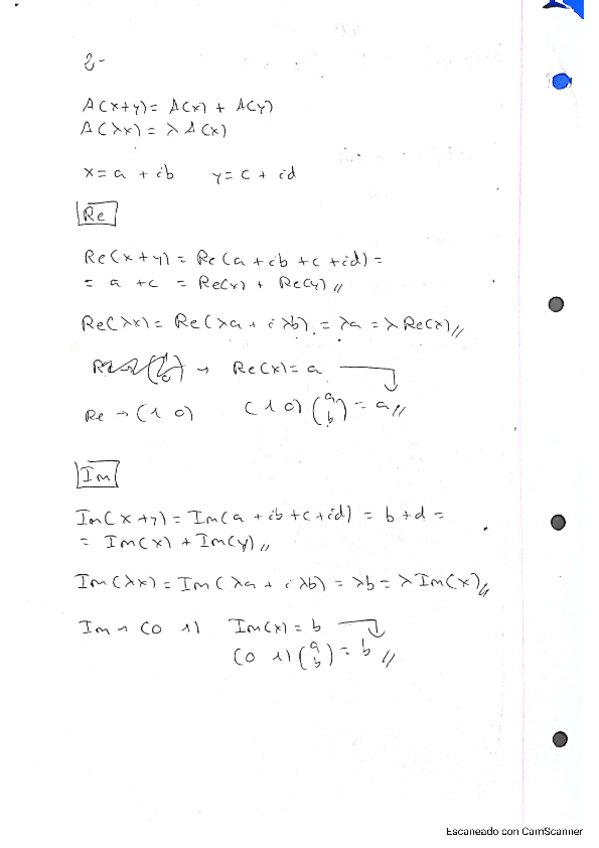 2-
A(x+y) = A(x) + A(y)
A(λx) = λ A(x)
x = a + ib   y = c + id
Re
Re(x+y) = Re(a + ib + c + id) =
= a + c = Re(x) + Re(y) //
Re(λx) = Re(λa + iλb) = λa = λ Re(x) //
→ Re(x) = a
Re → (1 0)   (1 0) (a b) = a //
Im
Im(x+y) = Im(a + ib + c + id) = b + d =
= Im(x) + Im(y) //
Im(λx) = Im(λa + iλb) = λb = λ Im(x) //
Im → (0 1)   Im(x) = b
(0 1) (a b) = b //
Escaneado con CamScanner